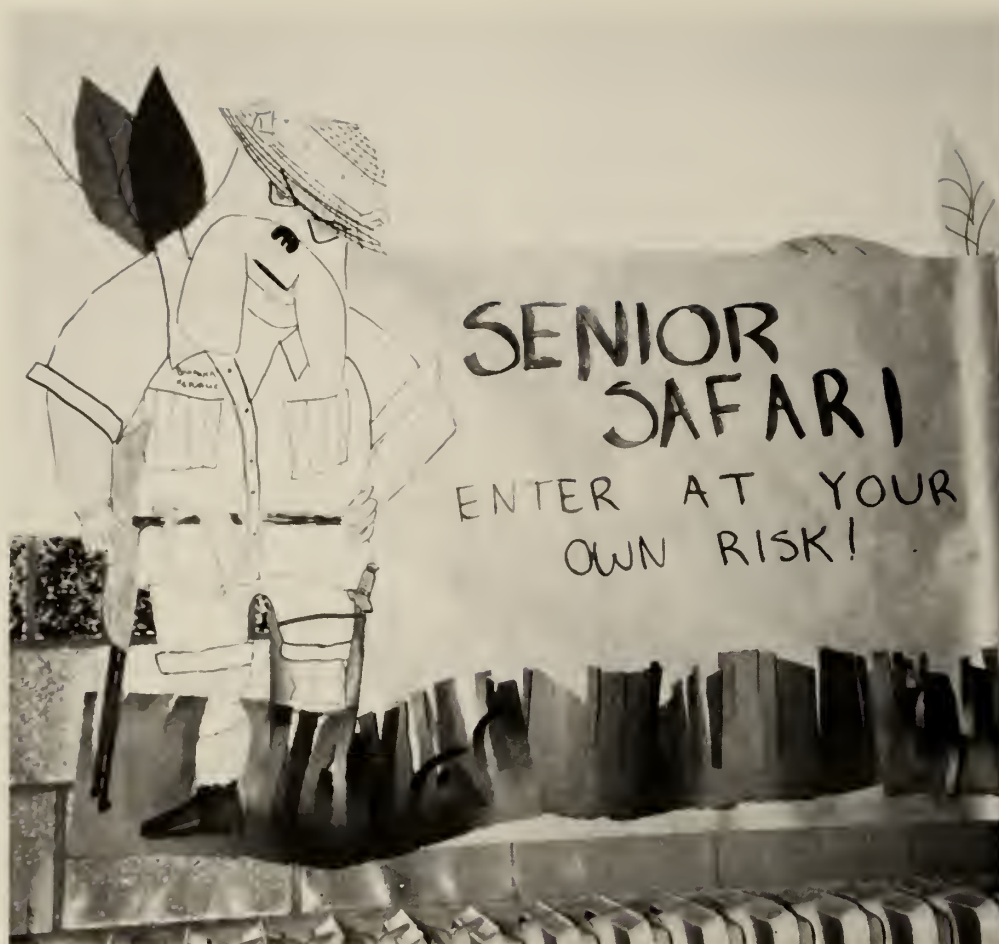 SENIOR
SAFARI
ENTER AT YOUR
OWN RISK!